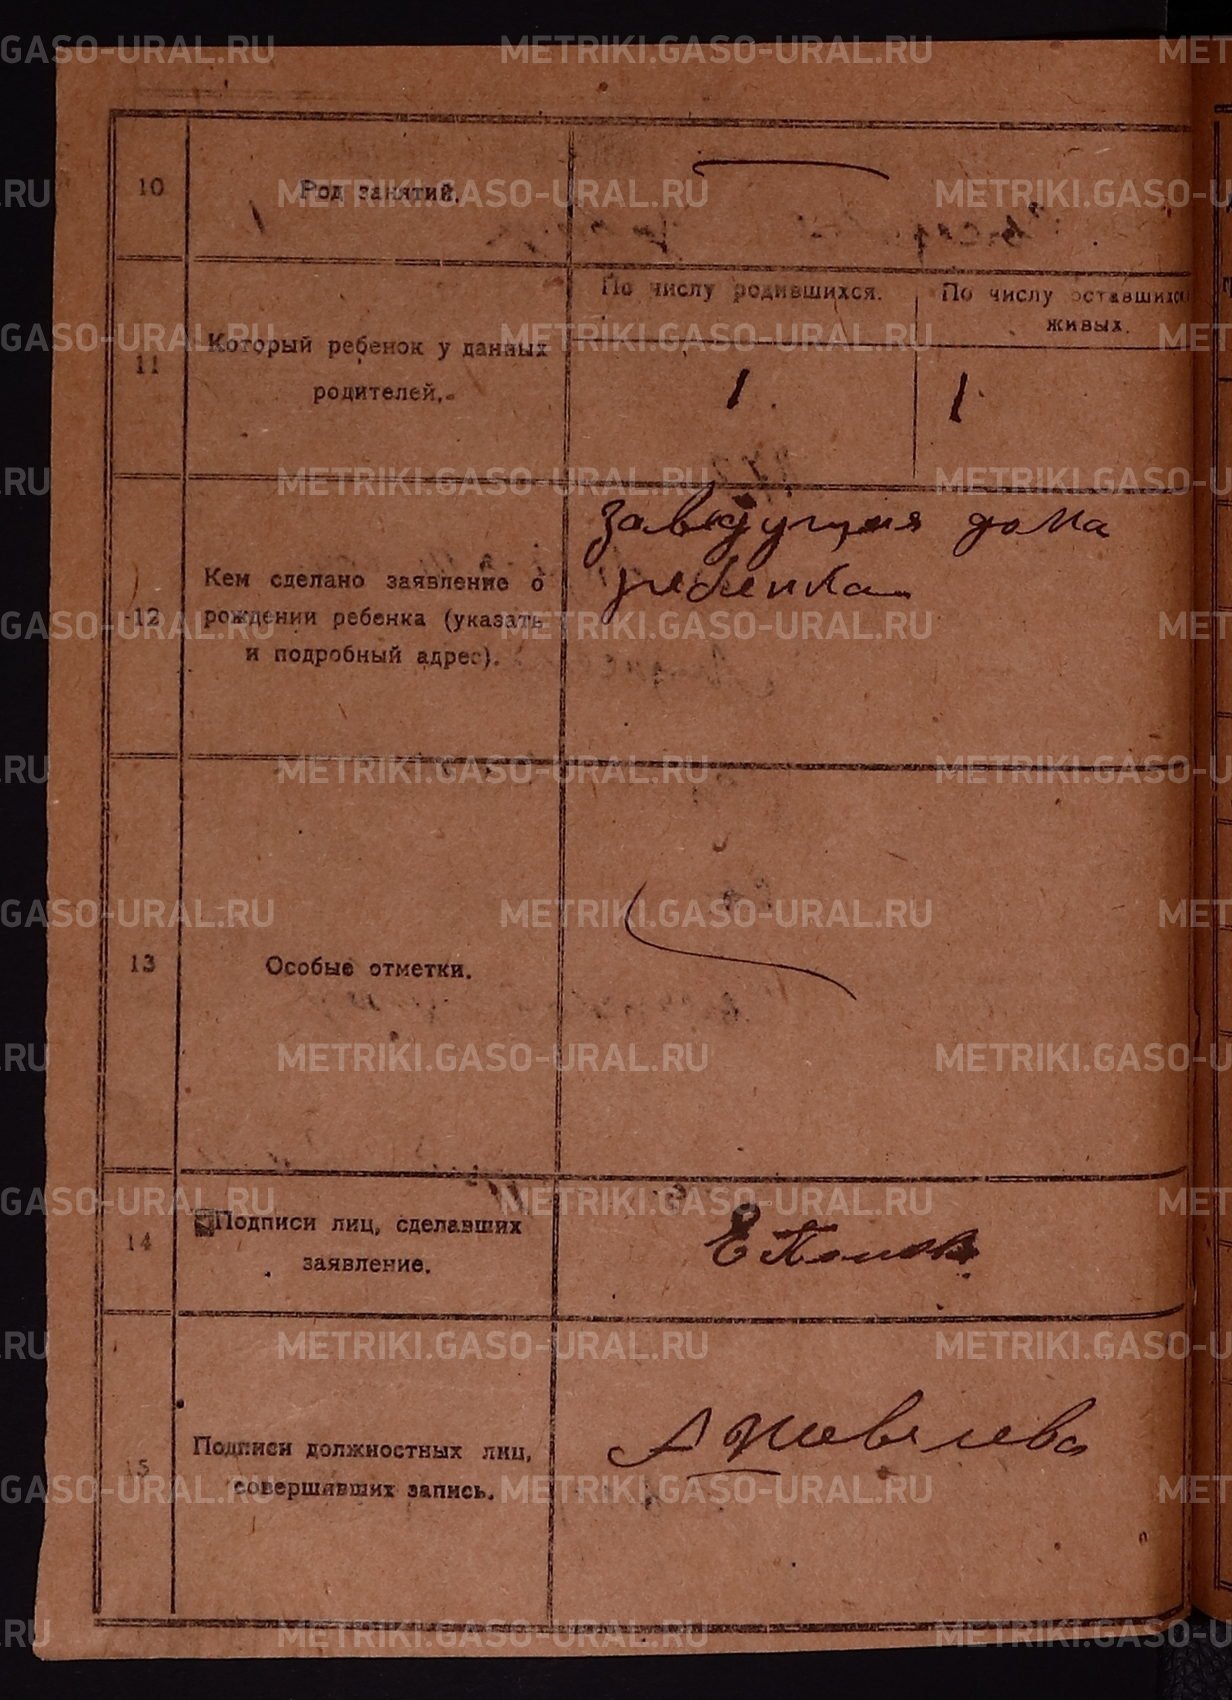 10
Род занятий.
11
Который ребенок у данных
родителей.
По числу родившихся.
По числу оставшихся
живых.
1
1
12
Кем сделано заявление о
рождении ребенка (указать
и подробный адрес).
заведущия дома
ребенка
13
Особые отметки.
14
Подписи лиц, сделавших
заявление.
Е Попов
15
Подписи должностных лиц,
совершявших запись.
METRIKI.GASO-URAL.RU